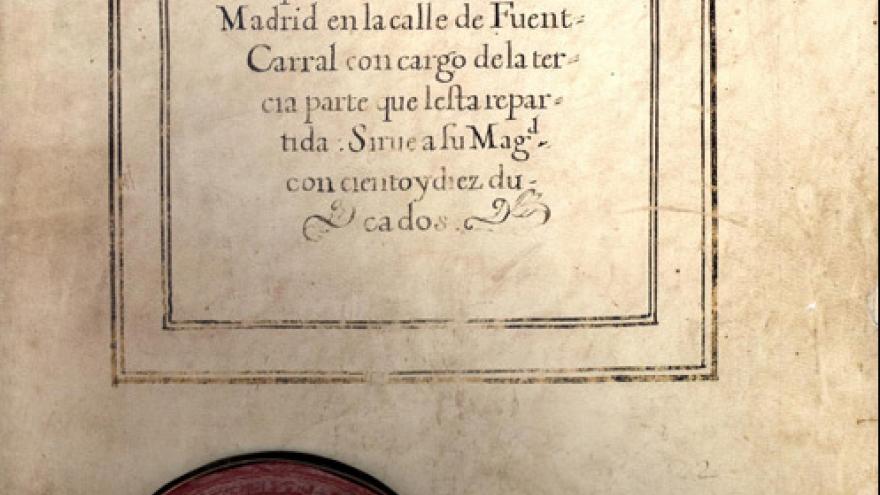 Madrid en la calle de Fuent-
Carral con cargo de la ter-
cia parte que lesta repar-
tida : Sirue a su Magd.
con ciento y diez du-
cados.
2